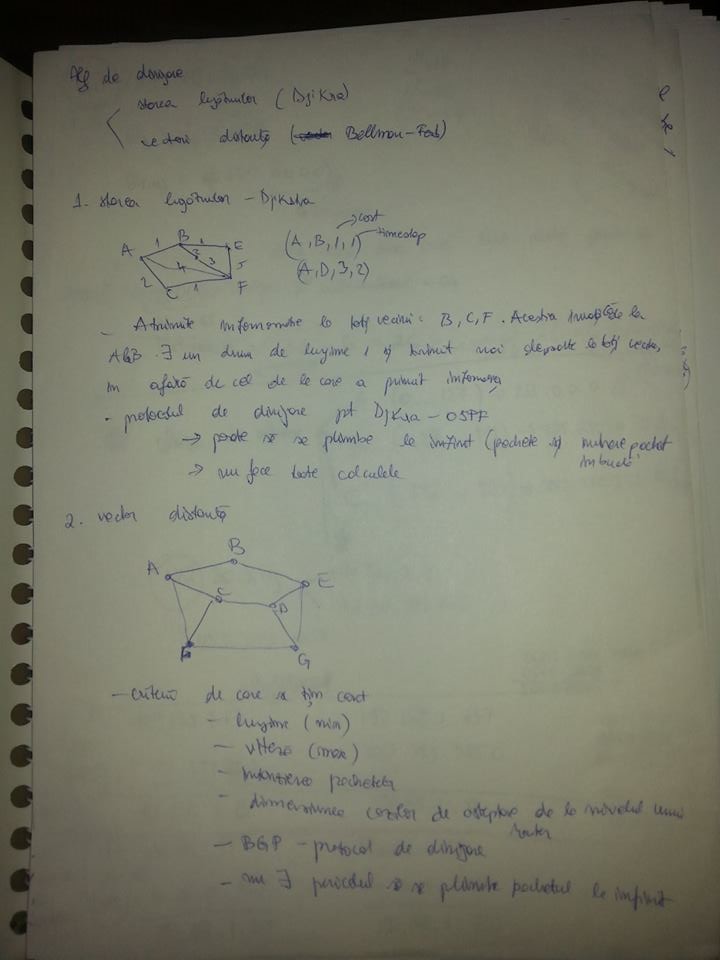 Alg de dirijare
starea legăturilor (Djikra)
vectori distanță (Bellman-Ford)
1. starea legăturilor - Djiksha
cost
(A, B, 1, 1) timestap
(A, D, 3, 2)
A B E C F
1 1 3 3 4 2 1 5
- A trimite informatie la toți vecinii: B, C, F. Aceștia
A la B. ∃ un drum de lungime 1 și trimit mai departe la toți vecinii,
în afară de cel de la care a primit informația
- protocolul de dirijare pt Djikra - OSPF
→ poate să se plimbe la infinit (pachete și pachet
→ nu face toate calculele
2. vector distanță
A B E C D F G
- criterii de care se țin cont
- lungime (min)
- viteza (max)
- întârzierea pachetelor
- dimensiunea cozilor de așteptare de la nivelul unui
router
- BGP - protocol de dirijare
- nu ∃ pericolul să se plimbe pachetul la infinit